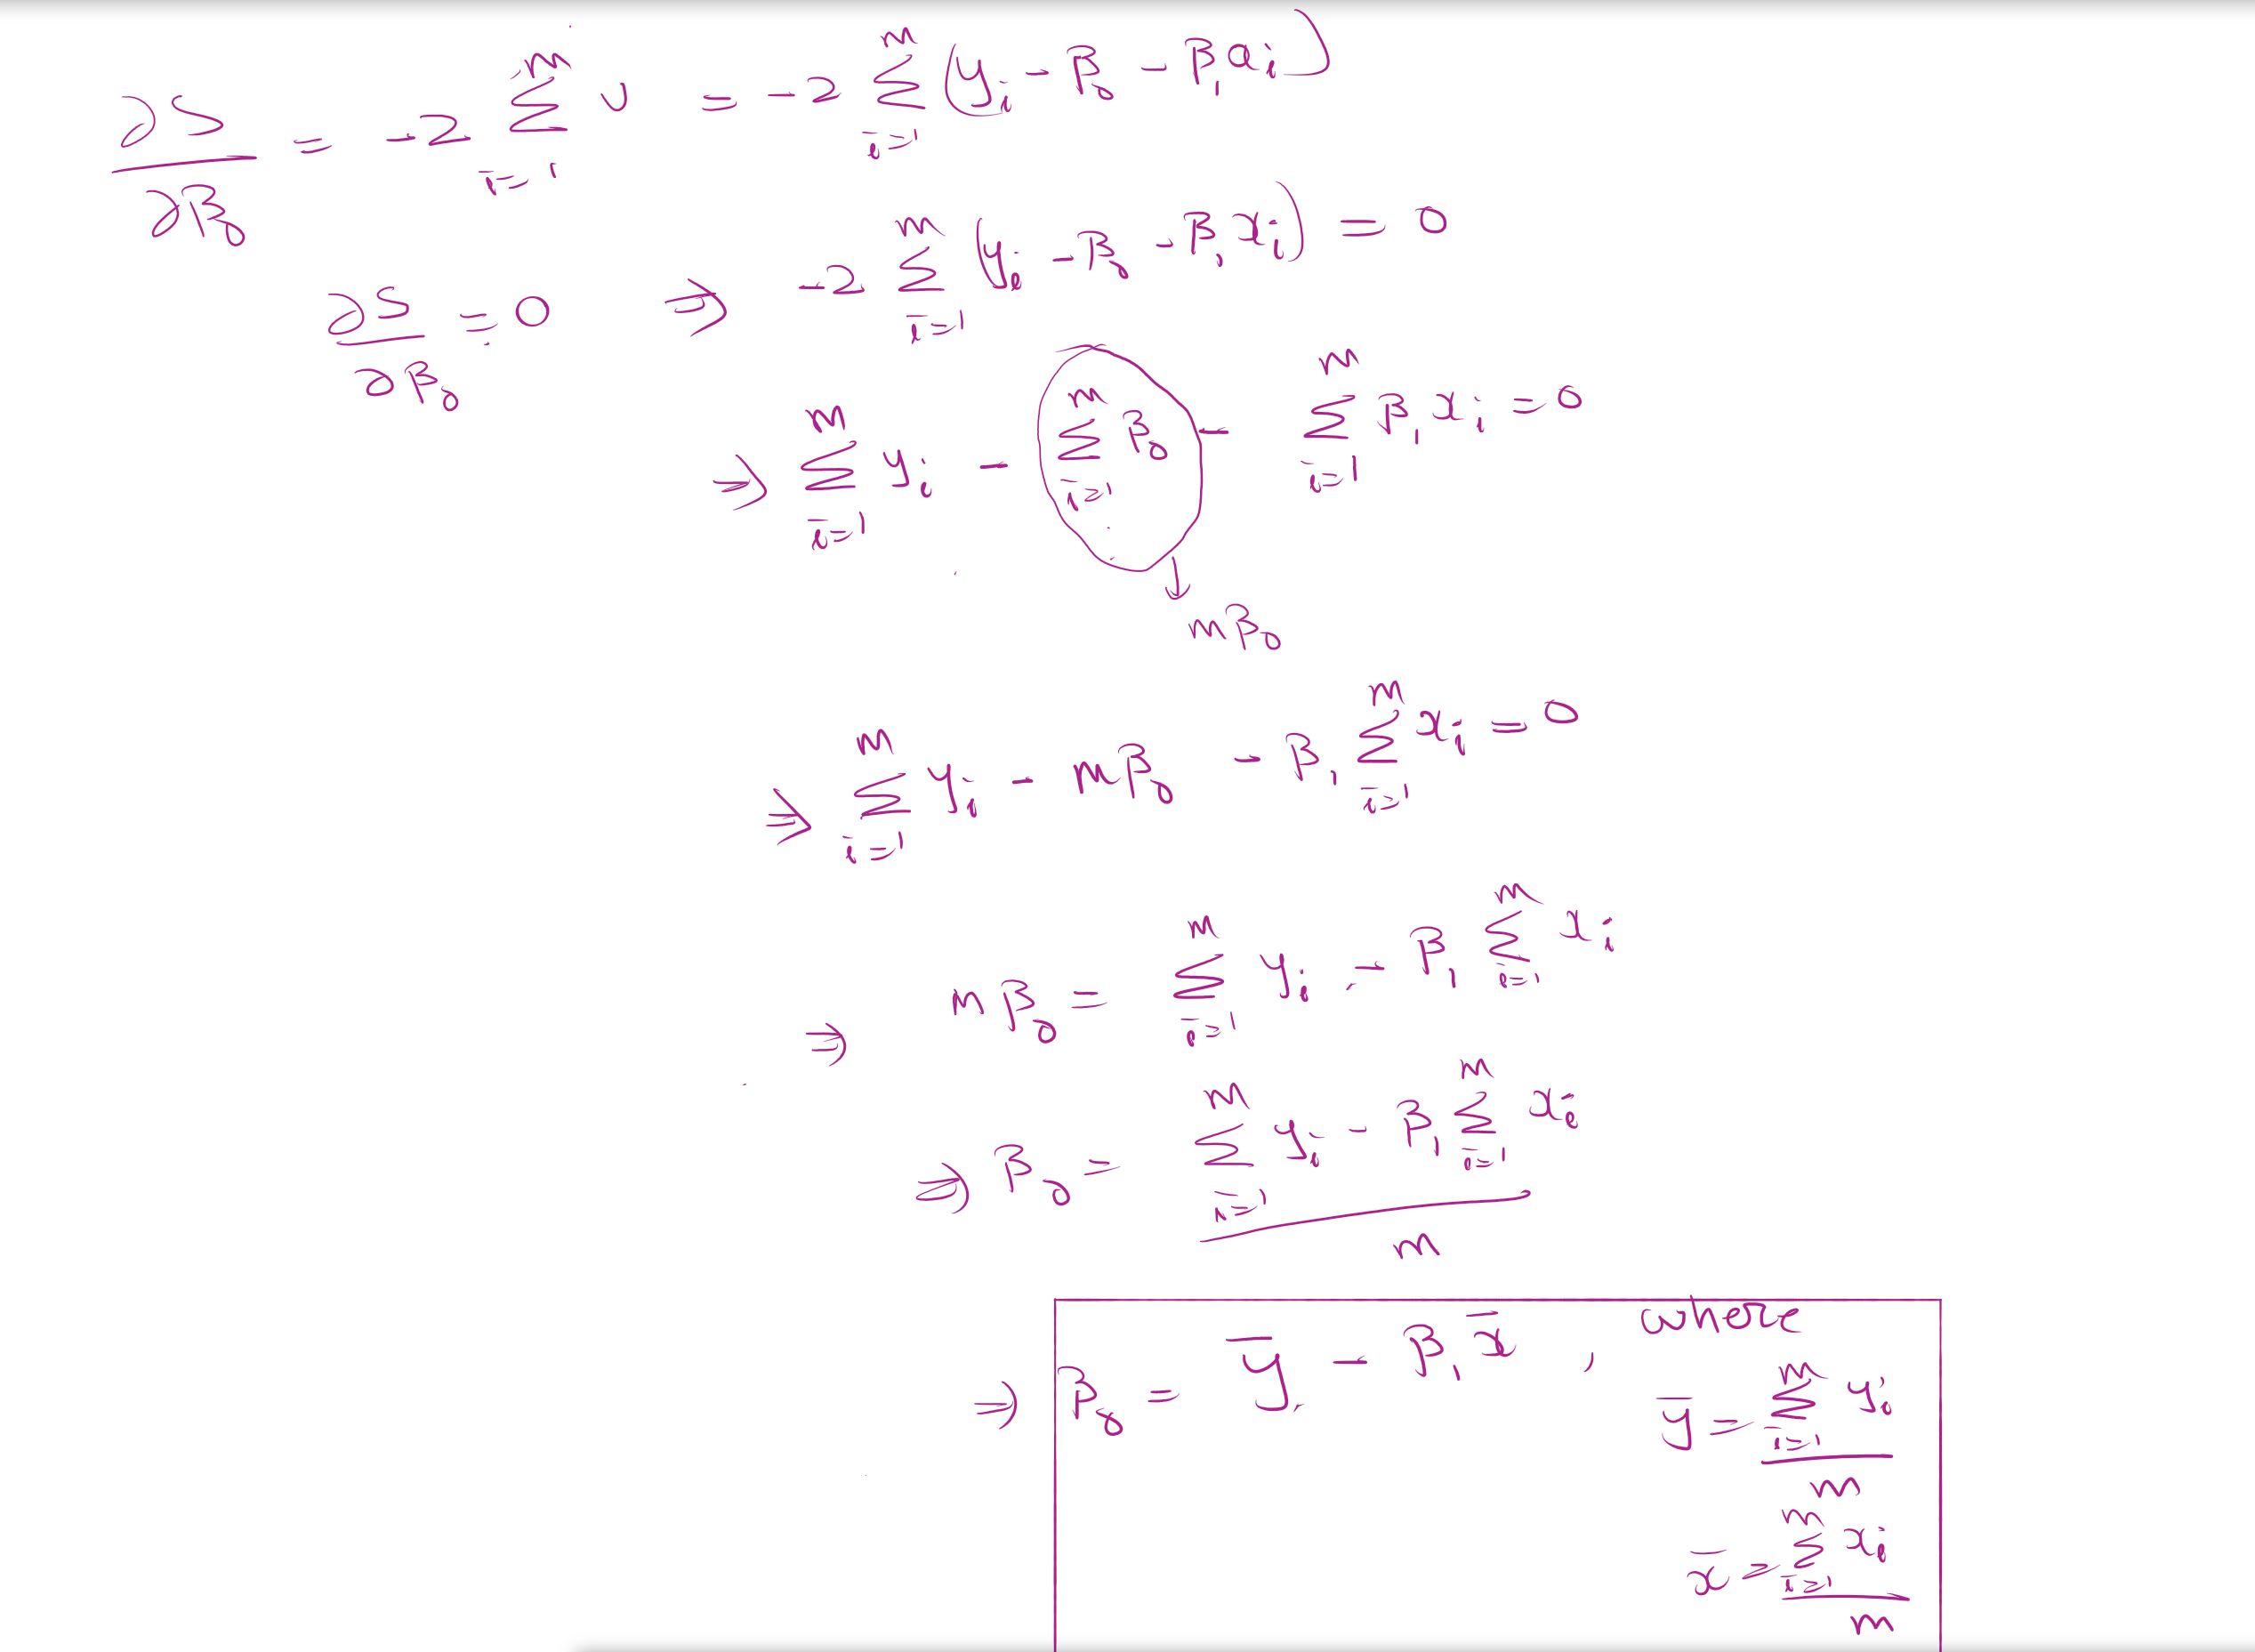 ∂S/∂β₀ = -2 Σ_{i=1}^{m} u = -2 Σ_{i=1}^{m} (y_i - β₀ - β₁x_i)
∂S/∂β₀ = 0 ⇒ -2 Σ_{i=1}^{m} (y_i - β₀ - β₁x_i) = 0
⇒ Σ_{i=1}^{m} y_i - Σ_{i=1}^{m} β₀ - Σ_{i=1}^{m} β₁x_i = 0
↓
mβ₀
⇒ Σ_{i=1}^{m} y_i - mβ₀ - β₁ Σ_{i=1}^{m} x_i = 0
⇒ mβ₀ = Σ_{i=1}^{m} y_i - β₁ Σ_{i=1}^{m} x_i
⇒ β₀ = (Σ_{i=1}^{m} y_i - β₁ Σ_{i=1}^{m} x_i) / m
⇒ β₀ = ȳ - β₁x̄ , where
ȳ = (Σ_{i=1}^{m} y_i) / m
x̄ = (Σ_{i=1}^{m} x_i) / m